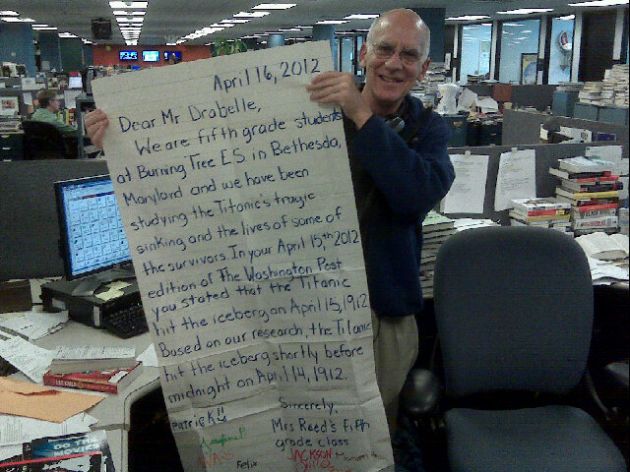 April 16, 2012
Dear Mr Drabelle,
We are fifth grade students
at Burning Tree ES in Bethesda,
Maryland and we have been
studying the Titanic's tragic
sinking and the lives of some of
the survivors. In your April 15,th 2012
edition of The Washington Post
you stated that the Titanic
hit the iceberg on April 15, 1912
Based on our research, the Titanic
hit the iceberg shortly before
midnight on April 14, 1912.
Patrick!!
Sincerely,
Mrs Reed's fifth
grade class
Felix
JACKSON